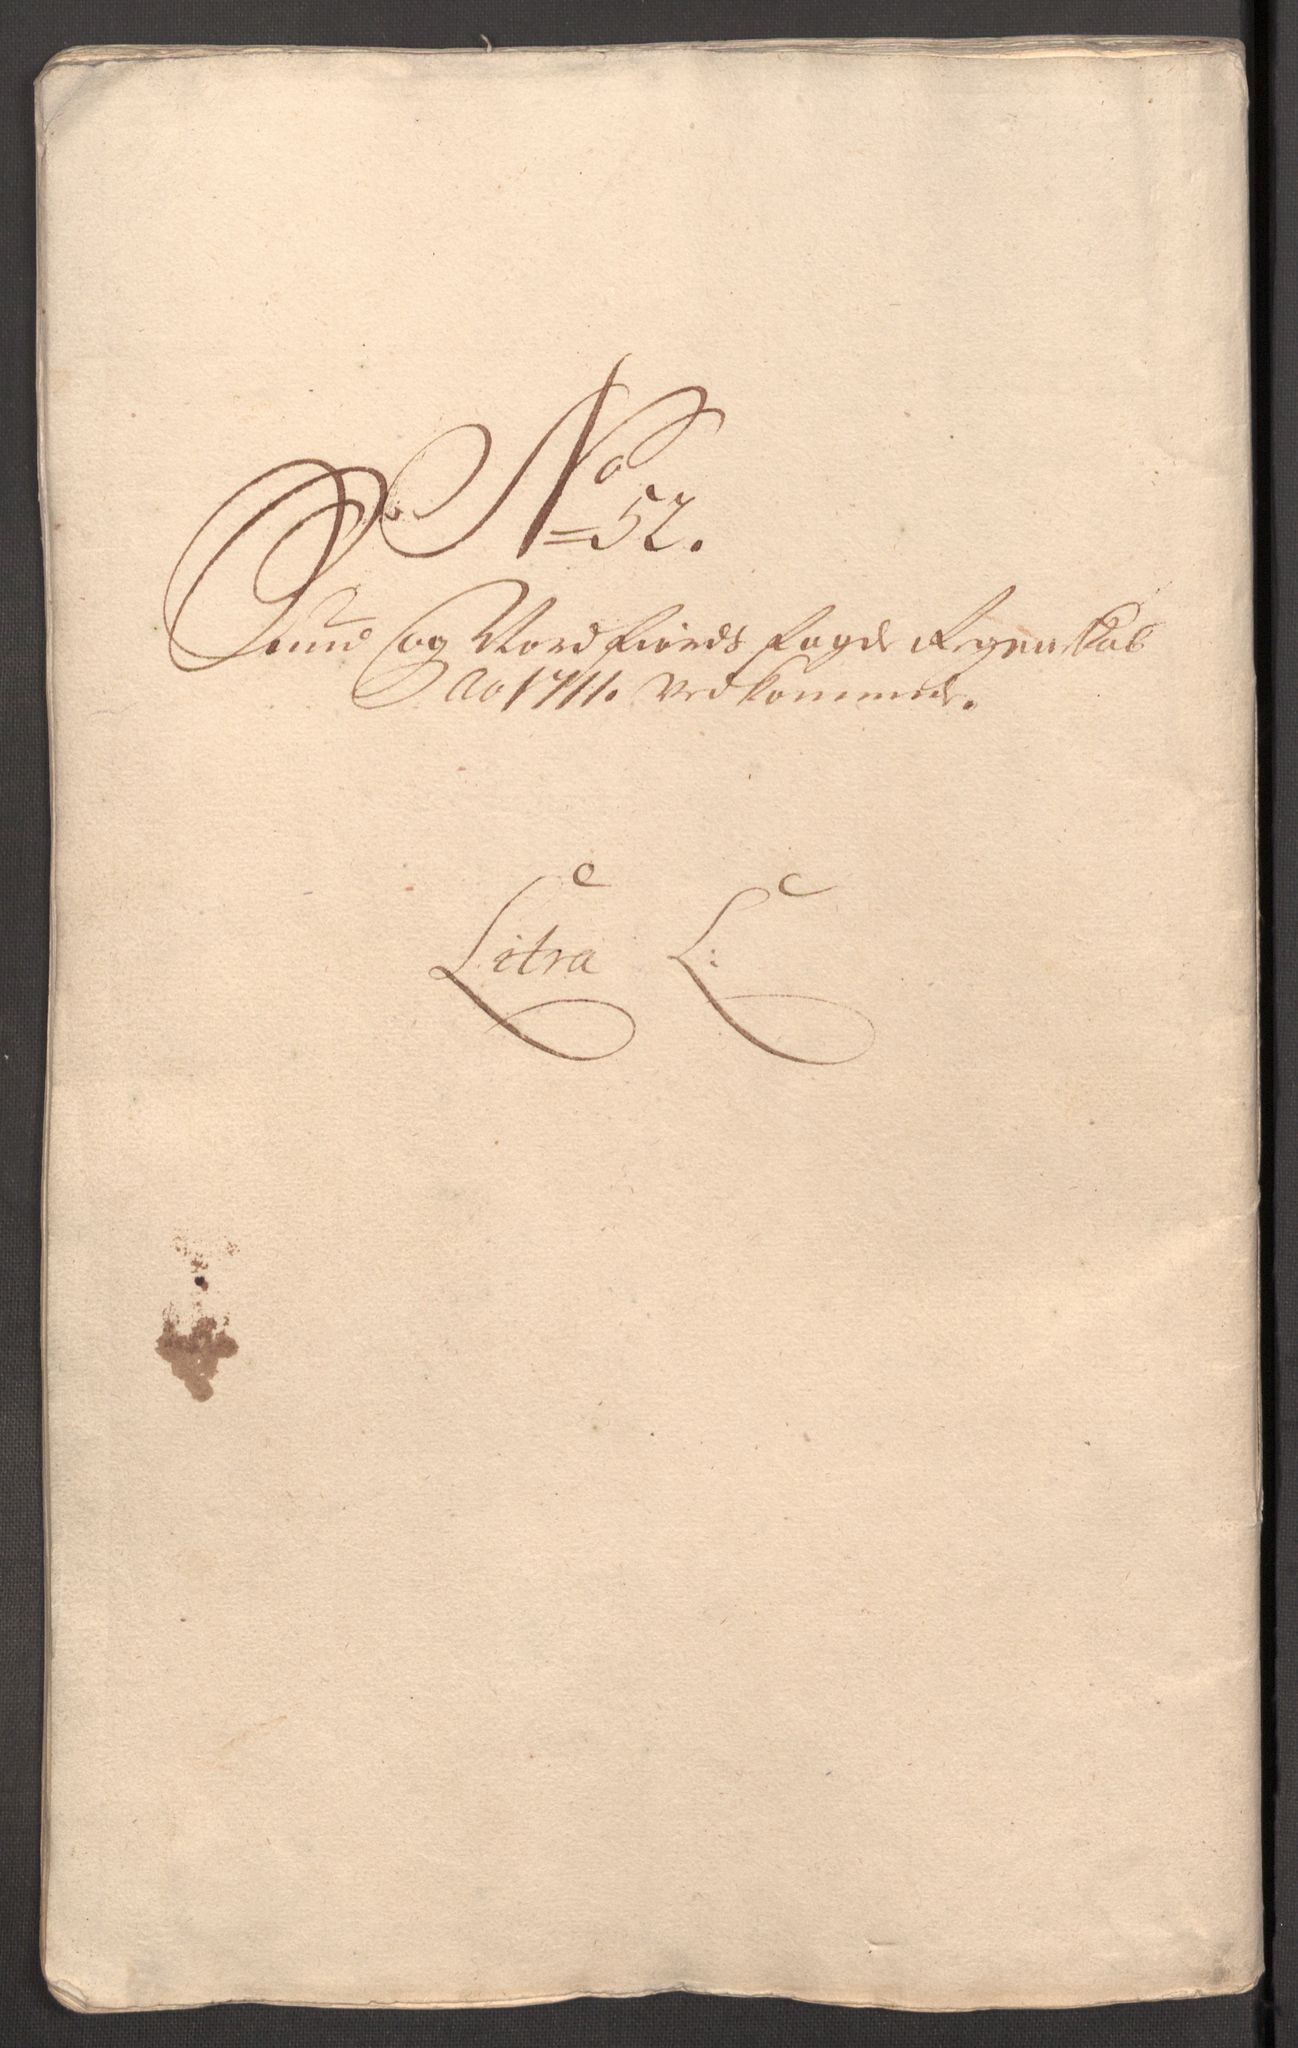 No 52.
Sund og Nordfiords fogde Regenskab
Ao 1711. Vedkommende.
Litra L: